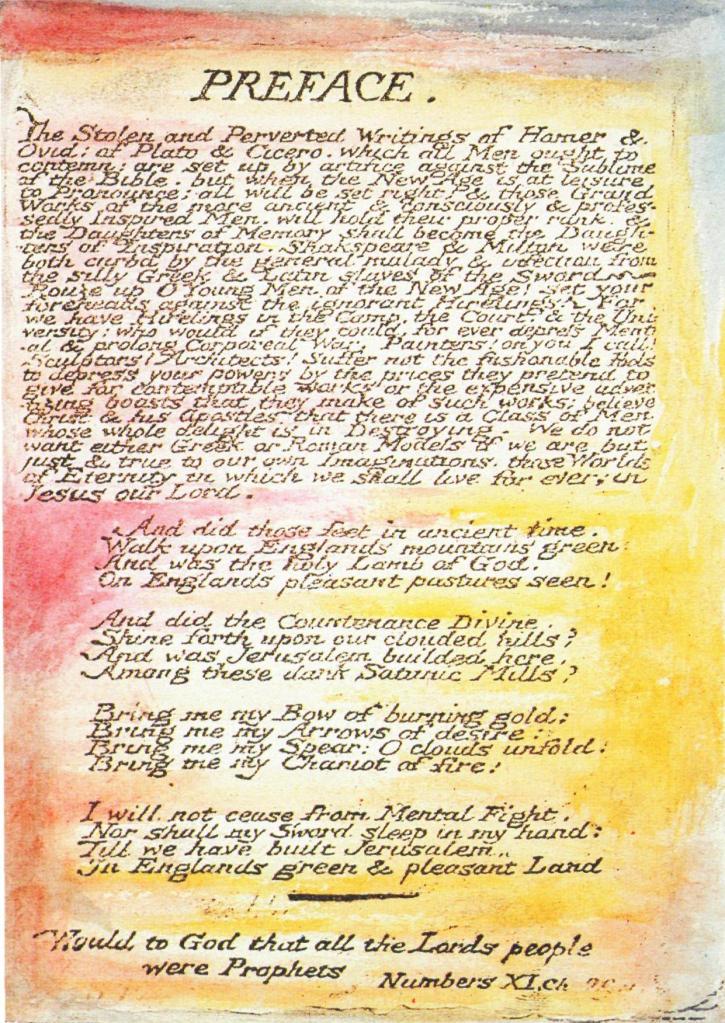 PREFACE.
The Stolen and Perverted Writings of Homer &
Ovid: of Plato & Cicero. which all Men ought to
contemn: are set up by artifice against the Sublime
of the Bible. but when the New Age is at leisure
to Pronounce: all will be set right: & those Grand
Works of the more ancient & consciously & profes-
sedly Inspired Men, will hold their proper rank. &
the Daughters of Memory shall become the Daugh-
ters of Inspiration. Shakspeare & Milton were
both curbd by the general malady & infection from
the silly Greek & Latin slaves of the Sword.
Rouze up O Young Men of the New Age! set your
foreheads against the ignorant Hirelings! For
we have Hirelings in the Camp, the Court, & the Uni
versity: who would if they could, for ever depress Ment
al & prolong Corporeal War. Painters! on you I call!
Sculptors! Architects! Suffer not the fashionable Fools
to depress your powers by the prices they pretend to
give for contemptible works or the expensive adver
tizing boasts that they make of such works; believe
Christ & his Apostles that there is a Class of Men
whose whole delight is in Destroying. We do not
want either Greek or Roman Models if we are but
just & true to our own Imaginations, those Worlds
of Eternity in which we shall live for ever; in
Jesus our Lord.
And did those feet in ancient time.
Walk upon Englands mountains green:
And was the holy Lamb of God.
On Englands pleasant pastures seen!
And did the Countenance Divine.
Shine forth upon our clouded hills?
And was Jerusalem builded here.
Among these dark Satanic Mills?
Bring me my Bow of burning gold:
Bring me my Arrows of desire:
Bring me my Spear: O clouds unfold!
Bring me my Chariot of fire!
I will not cease from Mental Fight.
Nor shall my Sword sleep in my hand:
Till we have built Jerusalem..
In Englands green & pleasant Land
Would to God that all the Lords people
were Prophets
Numbers XI.ch